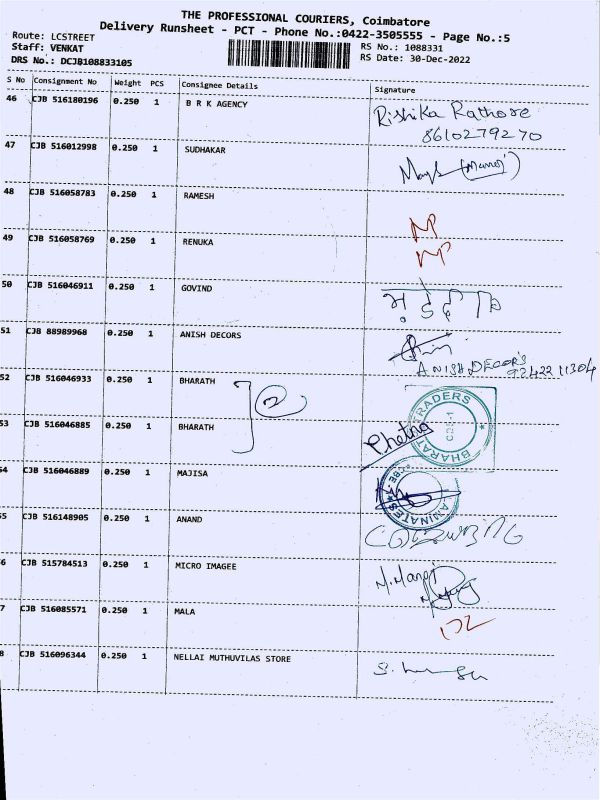 THE PROFESSIONAL COURIERS, Coimbatore
Delivery Runsheet - PCT - Phone No.:0422-3505555 - Page No.:5
Route: LCSTREET
Staff: VENKAT
DRS No.: DCJB108833105
RS No.: 1088331
RS Date: 30-Dec-2022
S No Consignment No Weight PCS Consignee Details Signature
46 CJB 516180196 0.250 1 B R K AGENCY Rishika Rathore
8610279270
47 CJB 516012998 0.250 1 SUDHAKAR (Manoj)
48 CJB 516058783 0.250 1 RAMESH
49 CJB 516058769 0.250 1 RENUKA
50 CJB 516046911 0.250 1 GOVIND
51 CJB 88989968 0.250 1 ANISH DECORS
ANISH DECORS
52 CJB 516046933 0.250 1 BHARATH 2
53 CJB 516046885 0.250 1 BHARATH
BHARAT TRADERS
CBE-1
54 CJB 516046889 0.250 1 MAJISA
55 CJB 516148905 0.250 1 ANAND
6 CJB 515784513 0.250 1 MICRO IMAGEE M. Manoj
7 CJB 516085571 0.250 1 MALA
8 CJB 516096344 0.250 1 NELLAI MUTHUVILAS STORE